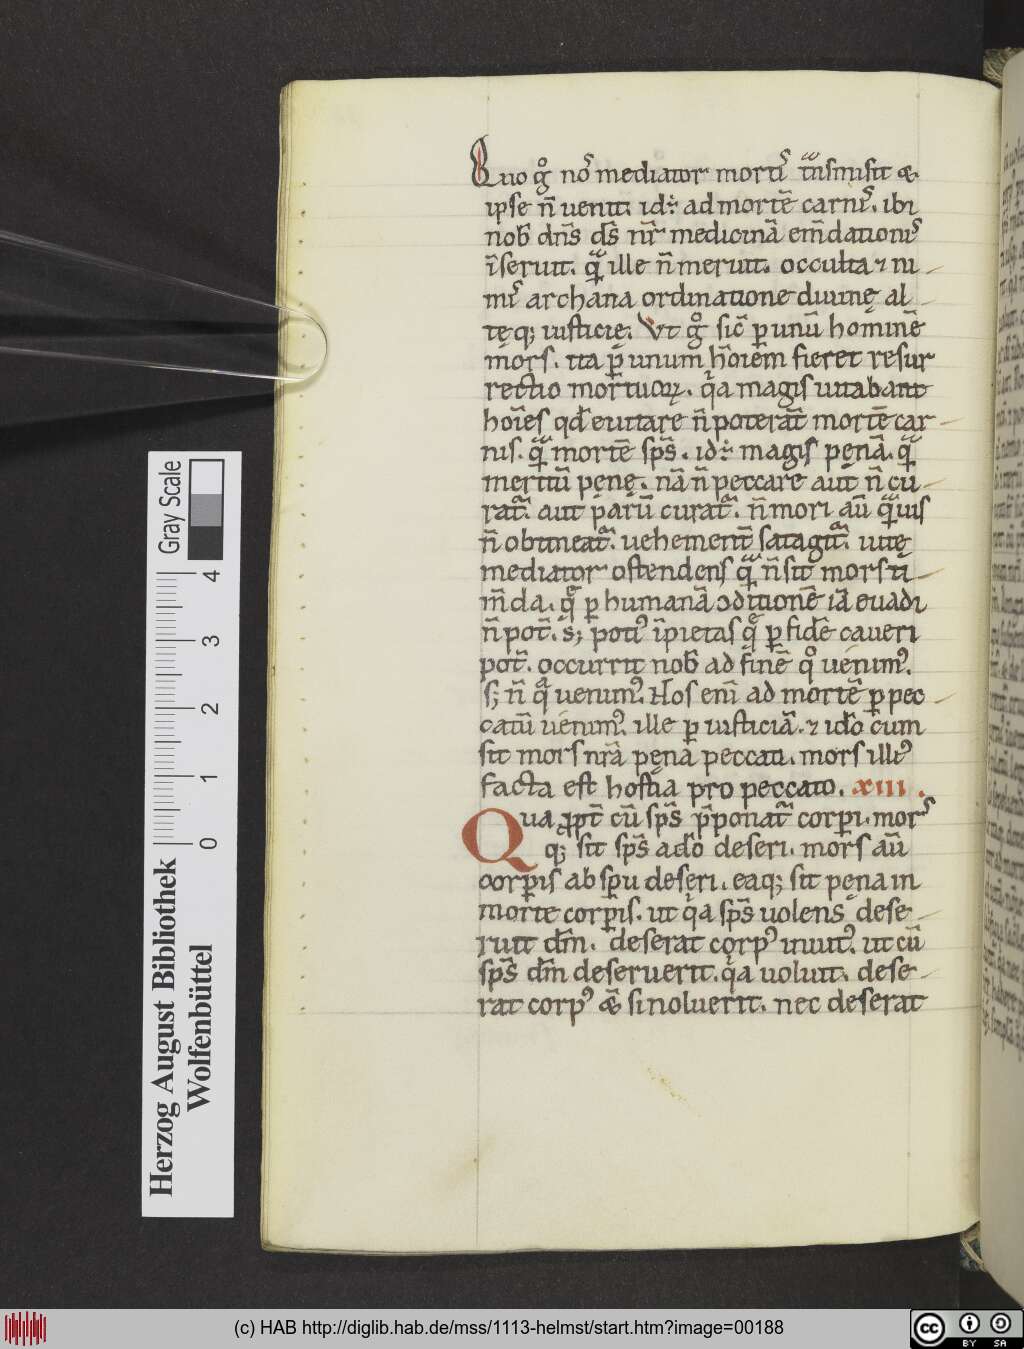 Quo g̊ nos̄ mediator mortis t̃nsmisit &
ipse n̄ uenit. id÷ ad mortē carnis. ibi
nob̄ dn̄s ds̄ nr̄ medicinā em̄dationis
īseruit. q̃ ille n̄ meruit. occulta ⁊ ni
mis archana ordinatione diuine al
tęq; iusticię. Vt g̊ sic̄ p unū hominē
mors. ita p unum hōiem fieret resur
rectio mortuoꝝ. qͥa magis uitabant
hoīes qđ euitare n̄ poterāt mortē car
nis. q̃ mortē sps̄. id÷ magis penā. q̃
meritū penę. nā n̄ peccare aut n̄ cu
rat̃. aut parū curat̃. n̄ mori aū q̃uis
n̄ obtineat̃. uehement̄ satagit̃. uitę
mediator ostendens q̃ n̄ sit mors ti
m̄da. q̃ p humanā ↄditionē iā euadi
n̄ pot̄. s; potiꝰ īpietas q̃ p fidē caueri
pot̄. occurrit nob̄ ad finē qͦ uenimꝰ.
s; n̄ qͣ uenimꝰ. Nos eni ad mortē p pec
catū uenimꝰ. ille p iusticiā. ⁊ ido cum
sit mors nr̄a pena peccati. mors illiꝰ
facta est hostia pro peccato. xiii.
Qua ꝓpt̄ cū sps̄ p̄ponat̃ corpi. mors
q; sit sps̄ a do deseri. mors aū
corpis ab spu deseri. eaq; sit pena in
morte corpis. ut qͥa sps̄ uolens dese
ruit dm̄. deserat corpꝰ inuitꝰ. ut cū
sps̄ dm̄ deseruerit. qͥa uoluit. dese
rat corpꝰ & si noluerit. nec deserat
Gray Scale
0 1 2 3 4
Herzog August Bibliothek
Wolfenbüttel
(c) HAB http://diglib.hab.de/mss/1113-helmst/start.htm?image=00188
cc BY SA